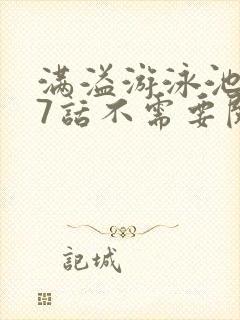 满溢游泳池
7話不需要
記城